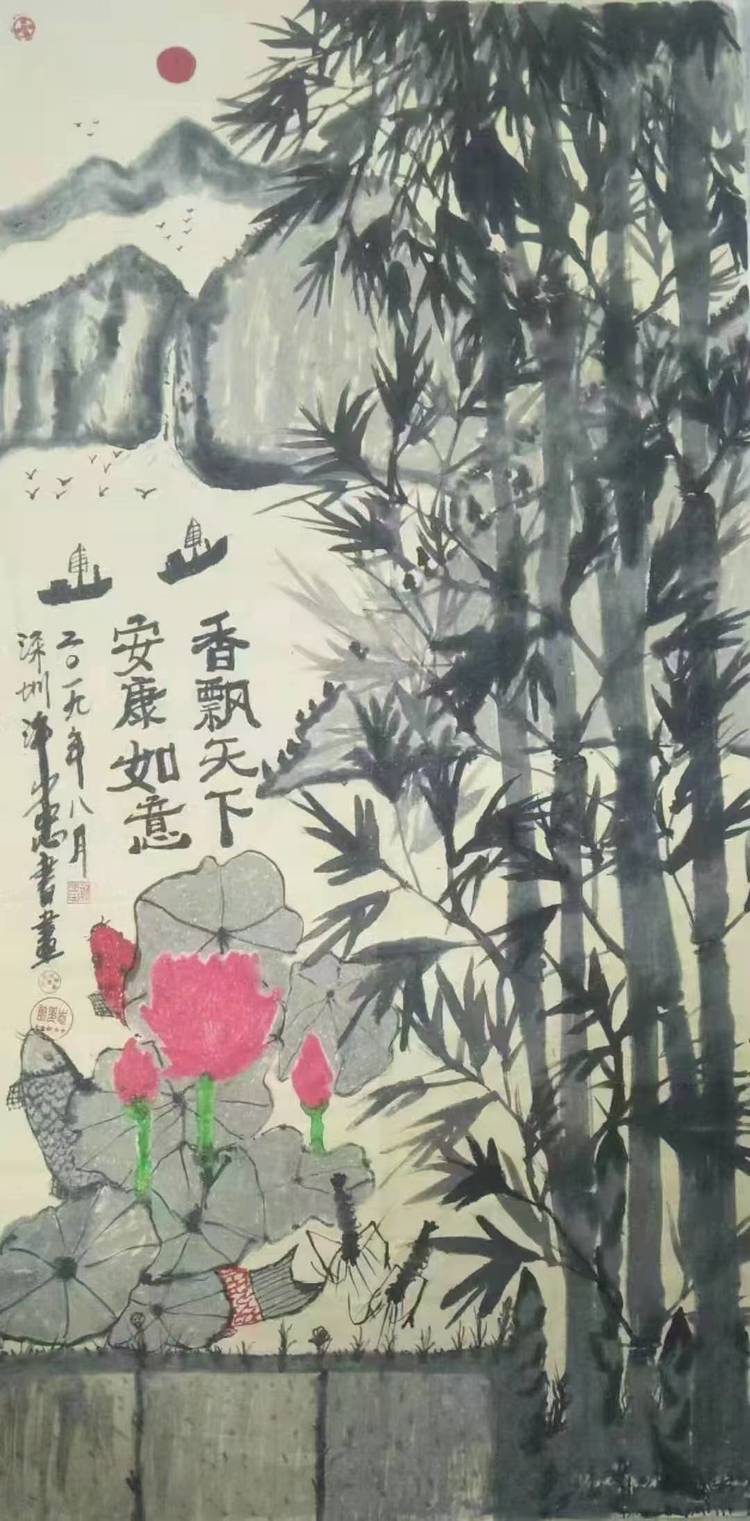 香飘天下
安康如意
二〇一九年八月
深圳 书畫